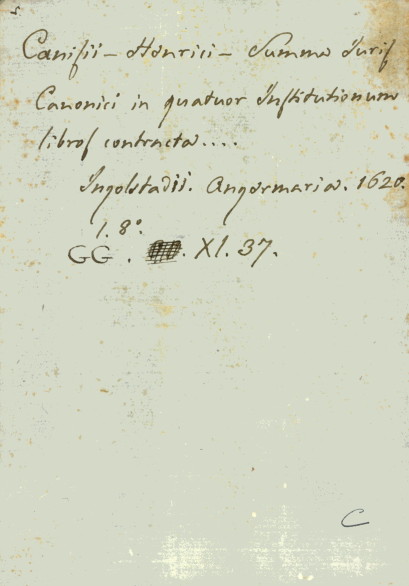 Canisii - Henrici - Summa Iuris
Canonici in quatuor Institutionum
libros contracta....
Ingolstadii. Angermaria. 1620.
1. 8°.
GG . XI. 37.
C